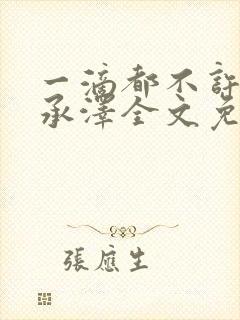 一滴都不許
承澤全文免
張應生